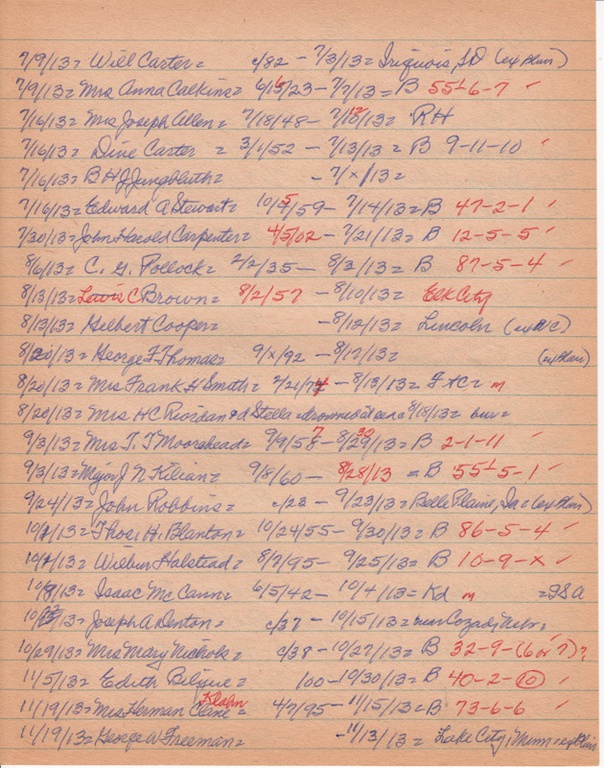 7/9/13= Will Carter= c/82 - 7/3/13= Iriquois, SD (ex Blair)
7/9/13= Mrs Anna Calkins= 6/15/23 - 7/7/13= B 55½-6-7 ✓
7/16/13= Mrs Joseph Allen= 7/18/48 - 7/12/13= RH
7/16/13= Dine Carter = 3/1/52 - 7/13/13= B 9-11-10 ✓
7/16/13= B H J Jungbluth= - 7/x/13=
7/16/13= Edward A Stewart= 10/5/59 - 7/14/13= B 47-2-1 ✓
7/30/13= John Harold Carpenter= 4/5/02 - 7/21/13= B 12-5-5 ✓
8/6/13= C. G. Pollock= 2/2/35 - 8/3/13= B 87-5-4 ✓
8/13/13= Lewis C Brown= 8/2/57 - 8/10/13= Elk City
8/13/13= Helbert Cooper= - 8/12/13= Lincoln (ex WC)
8/20/13= George F Thomas= 9/x/92 - 8/17/13= (ex Blair)
8/20/13= Mrs Frank H Smith= 2/21/74 - 8/13/13= FAC= m
8/20/13= Mrs H C Riordan & d Stella 8/18/13= bur=
9/3/13= Mrs T. T Moorehead= 9/9/57 - 8/30/13= B 2-1-11 ✓
9/3/13= Major J N Kilian= 9/8/60 - 8/28/13 = B 55½-5-1 ✓
9/24/13= John Robbins= c/23 - 9/23/13= Belle Plaine, Ia= (ex Blair)
10/1/13= Thos. H. Blanton= 10/24/55 - 9/30/13= B 86-5-4 ✓
10/1/13= Wilbur Halstead= 8/7/95 - 9/25/13= B 10-9-x ✓
10/8/13= Isaac McCann= 6/5/42 - 10/4/13= Kd m =GSA
Joseph A Denton= c/37 - 10/15/13= near Cozad, Nebr=
10/29/13= Mrs Mary Nichols= c/38 - 10/27/13= B 32-9-(6 or 7)?
11/5/13= Edith Bilyue= 100 - 10/30/13= B 40-2-(0) ✓
11/19/13= Mrs Herman Cline= Klahn 4/7/95 - 11/15/13= B 73-6-6 ✓
11/19/13= George W Freeman= - 11/13/13= Lake City, Minn= ex Blair